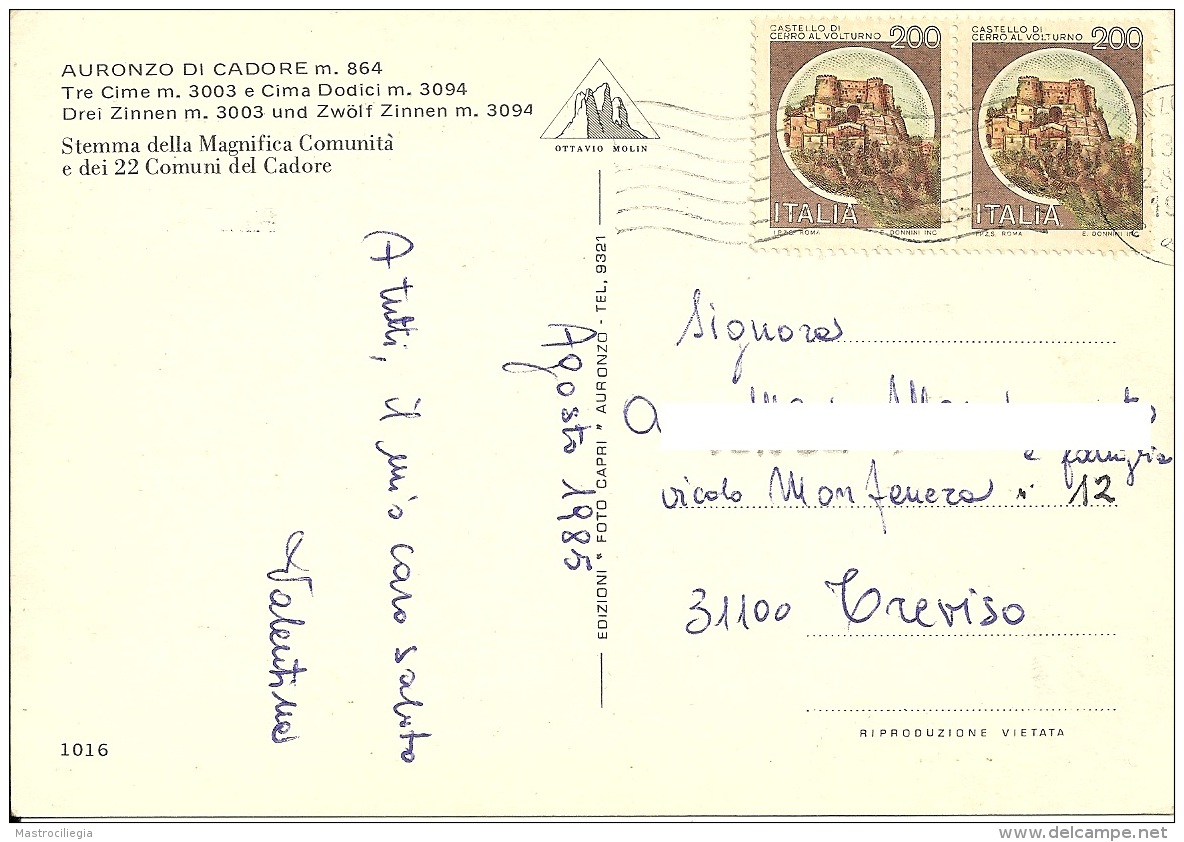 AURONZO DI CADORE m. 864
Tre Cime m. 3003 e Cima Dodici m. 3094
Drei Zinnen m. 3003 und Zwölf Zinnen m. 3094
Stemma della Magnifica Comunità
e dei 22 Comuni del Cadore
OTTAVIO MOLIN
CASTELLO DI
CERRO AL VOLTURNO 200
ITALIA
I.P.Z.S. ROMA E. DONNINI INC.
CASTELLO DI
CERRO AL VOLTURNO 200
ITALIA
I.P.Z.S. ROMA E. DONNINI INC.
Agosto 1985
A tutti, il mio caro saluto
Valentina
EDIZIONI " FOTO CAPRI " AURONZO - TEL. 9321
Signora
e famiglia
vicolo Monfenera n° 12
31100 Treviso
RIPRODUZIONE VIETATA
1016
Mastrociliegia
www.delcampe.net